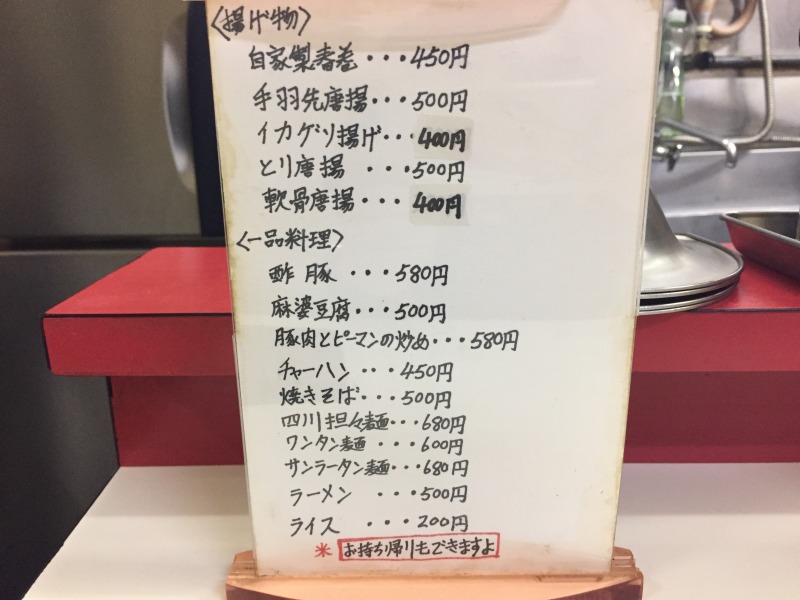 〈揚げ物〉
自家製春巻・・・450円
手羽先唐揚・・・500円
イカゲソ揚げ・・・400円
とり唐揚・・・500円
軟骨唐揚・・・400円
〈一品料理〉
酢豚・・・580円
麻婆豆腐・・・500円
豚肉とピーマンの炒め・・・580円
チャーハン・・・450円
焼きそば・・・500円
四川担々麺・・・680円
ワンタン麺・・・600円
サンラータン麺・・・680円
ラーメン・・・500円
ライス・・・200円
※お持ち帰りもできますよ